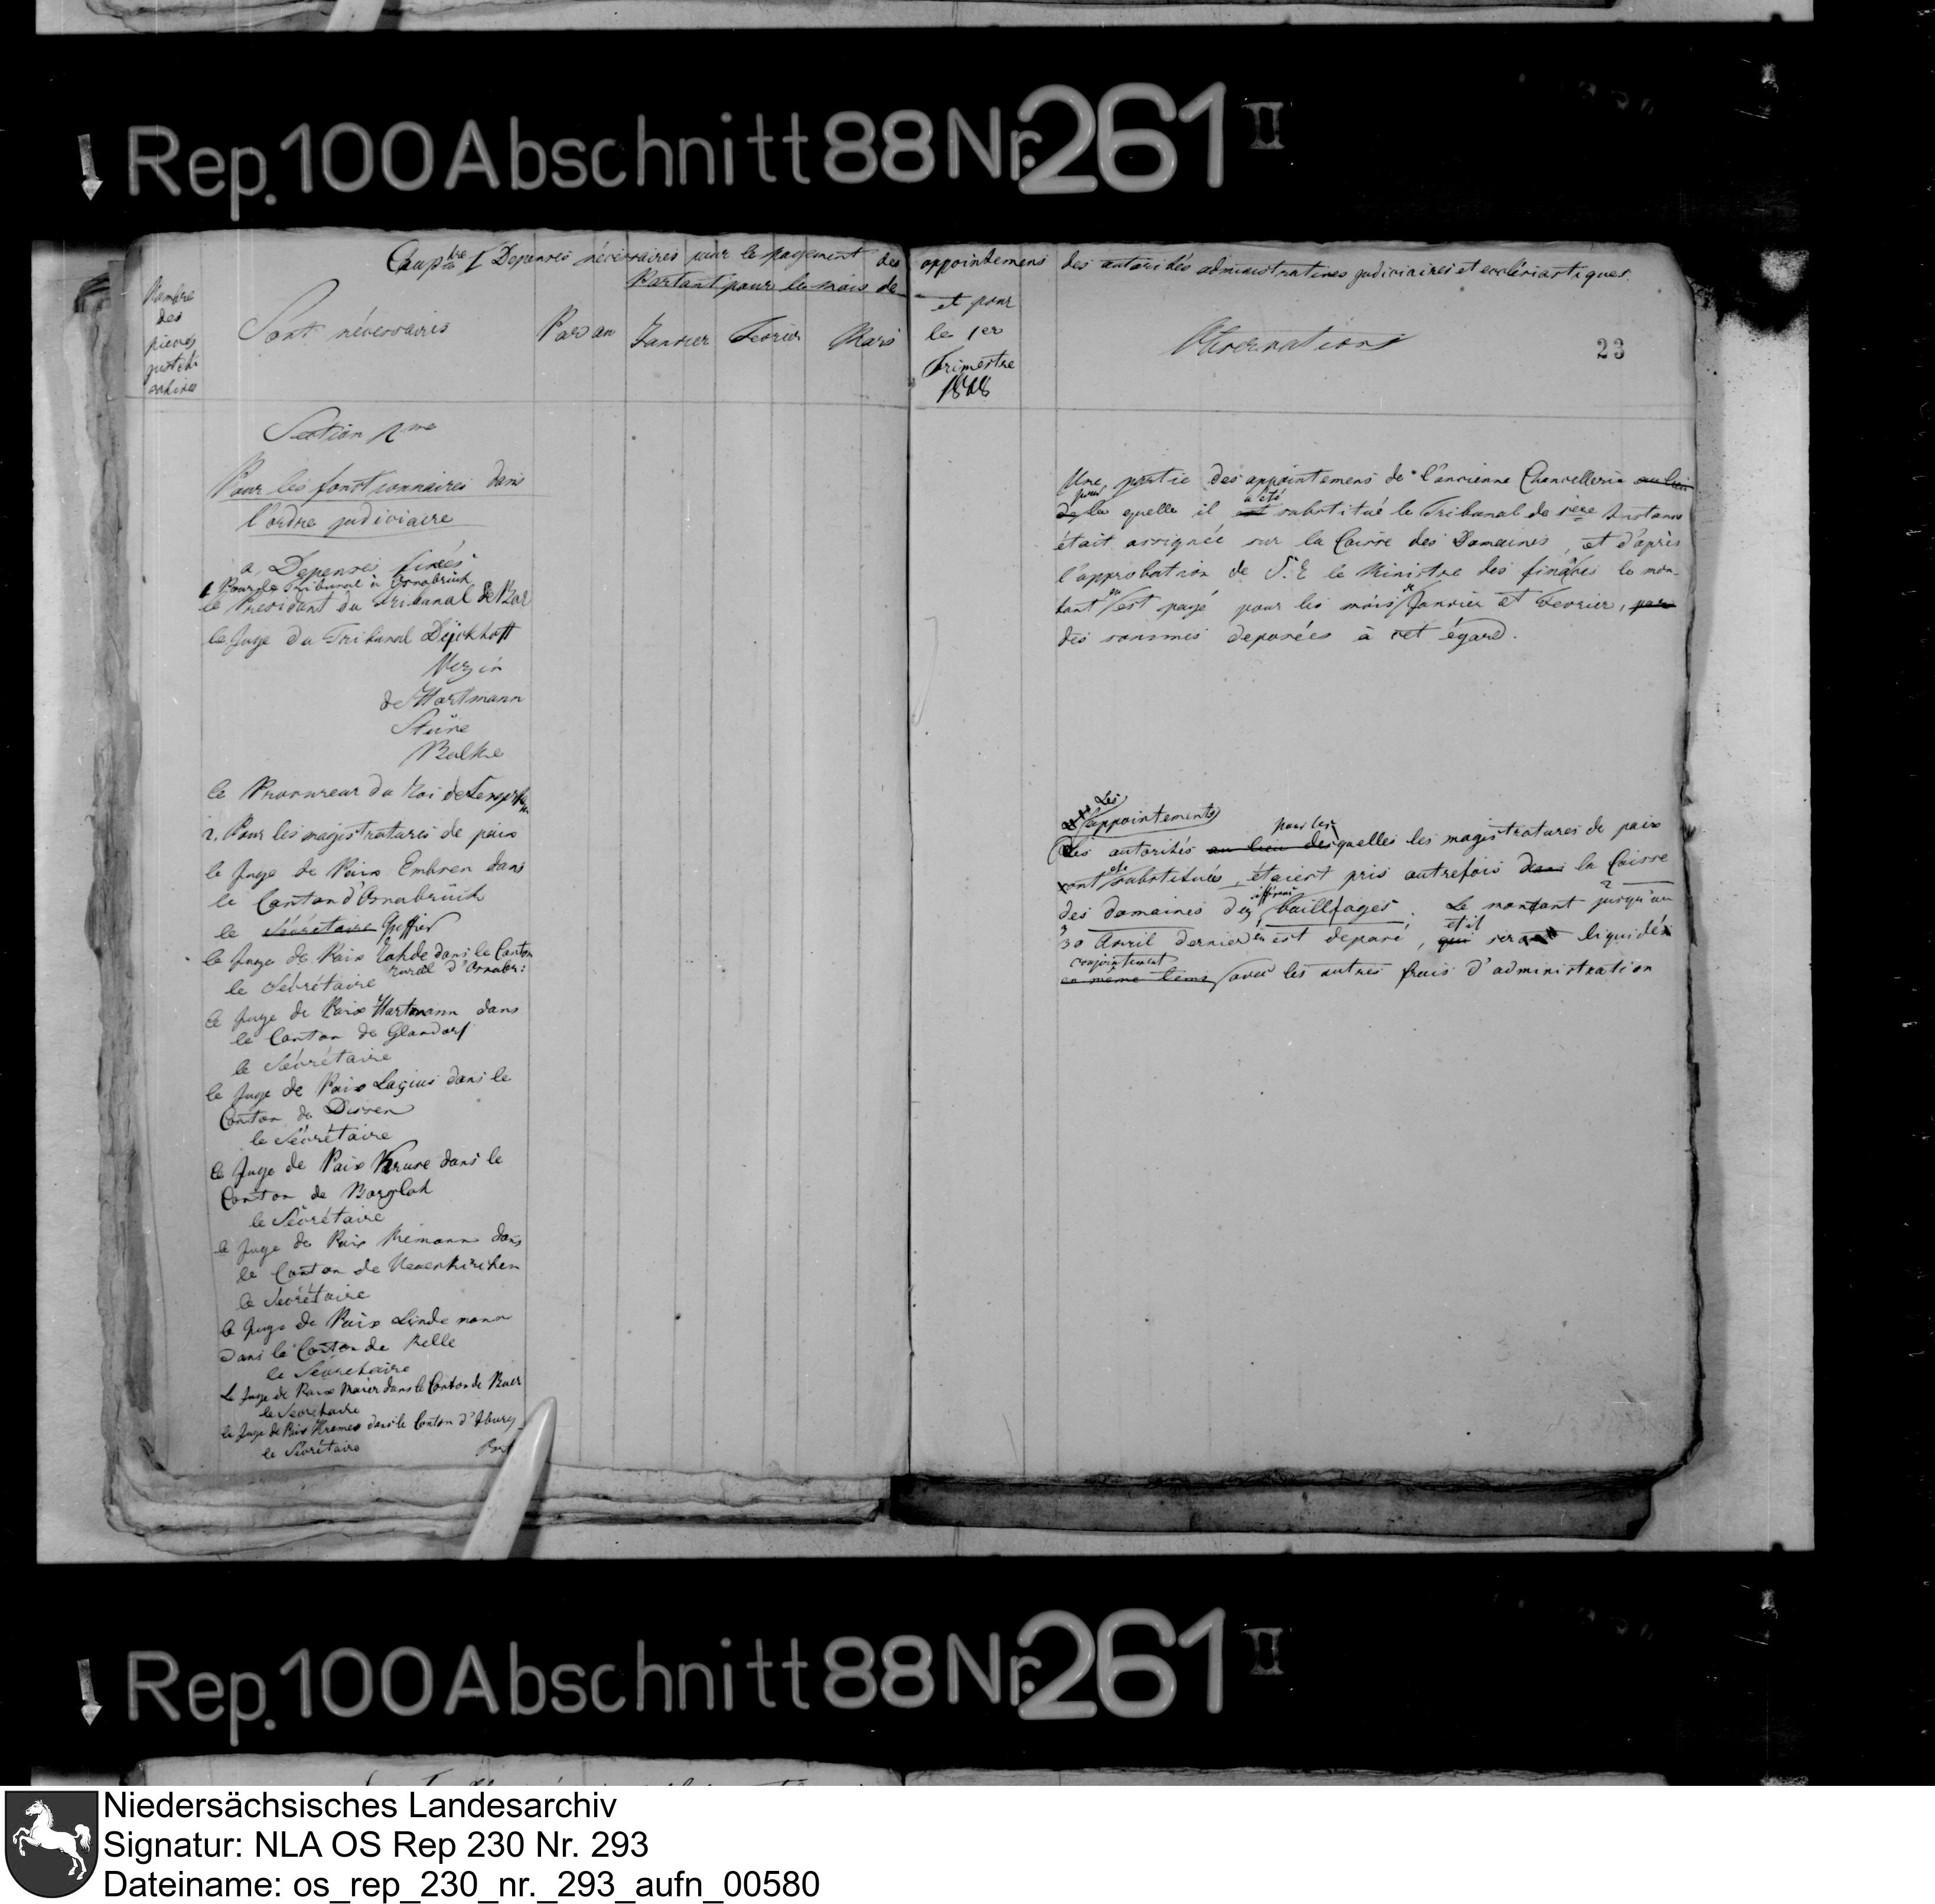 Rep. 100 Abschnitt 88 Nr. 261 II
Chapitre I Depenses nécessaires pour le payement des appointemens des autorités administratives judiciaires et ecclésiastiques.
Partant pour les mois de
Nombre
des
pieces
justifi
catives
Sont nécessaires
Par an
Janvier
Fevrier
Mars
et pour
le 1er
Trimestre
1808
Observations
23
Section 2me
Pour les fonctionnaires dans
l'ordre judiciaire
a, Depenses fixées
1 Pour le Tribunal à Osnabrück
le President du Tribunal de Bar
le Juge du Tribunal Dÿckhoff
Vezin
de Hartmann
Stüve
Balke
le Procureur du Roi de
2. Pour les magistratures de paix
le Juge de Paix Embsen dans
le Canton d'Osnabrück
le Sécrétaire Greffier
le Juge de Paix dans le Canton
rural d'Osnabr:
le Sécrétaire
le Juge de Paix Hartmann dans
le Canton de Glandorf
le Sécrétaire
le Juge de Paix Lasius dans le
Canton de Dissen
le Sécrétaire
le Juge de Paix Kruse dans le
Canton de Borgloh
le Sécrétaire
le Juge de Paix Niemann dans
le Canton de Neuenkirchen
le Secrétaire
le Juge de Paix Lindemann
dans le Canton de Melle
le Secretaire
le Juge de Paix Maier dans le Canton de Buer
le Secretaire
le Juge de Paix dans le Canton d'Iburg
le Sécrétaire
Une partie des appointemens de l'ancienne Chancellerie au lieu
pour
de la quelle il a été est substitué le Tribunal de 1ère Instance
était assignée sur la Caisse des Domaines, et d'après
l'approbation de S. E le Ministre des finances le mon-
tant en est payé pour les mois de Janvier et Fevrier, par
des sommes deposées à cet égard.
Les
appointements
des autorités au lieu pour les desquelles les magistratures de paix
sont été substitués, étaient pris autrefois dans la Caisse
des domaines des différens bailliages. Le montant jusqu'au
30 Avril dernier en est deposé, qui et il sera liquidés
conjointement
en même tems avec les autres frais d'administration
Rep. 100 Abschnitt 88 Nr. 261 II
Niedersächsisches Landesarchiv
Signatur: NLA OS Rep 230 Nr. 293
Dateiname: os_rep_230_nr._293_aufn_00580